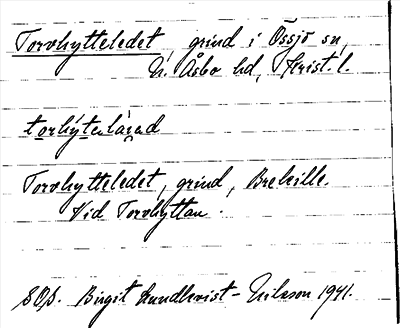 Torvhytteledet, grind i Össjö sn,
N. Åsbo hd, Krist. l.
torhýtelàṛad
Torvhytteledet, grind, Breville.
Vid Torvhyttan.
SOS. Birgit Lundkvist-Nilsson 1941.